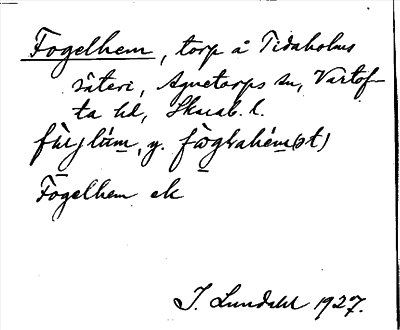 Fogelhem, torp å Tidaholms
säteri, Agnetorps sn, Vartof-
ta hd, Skarab. l.
Fogelhem ek
J. Lundahl 1927.